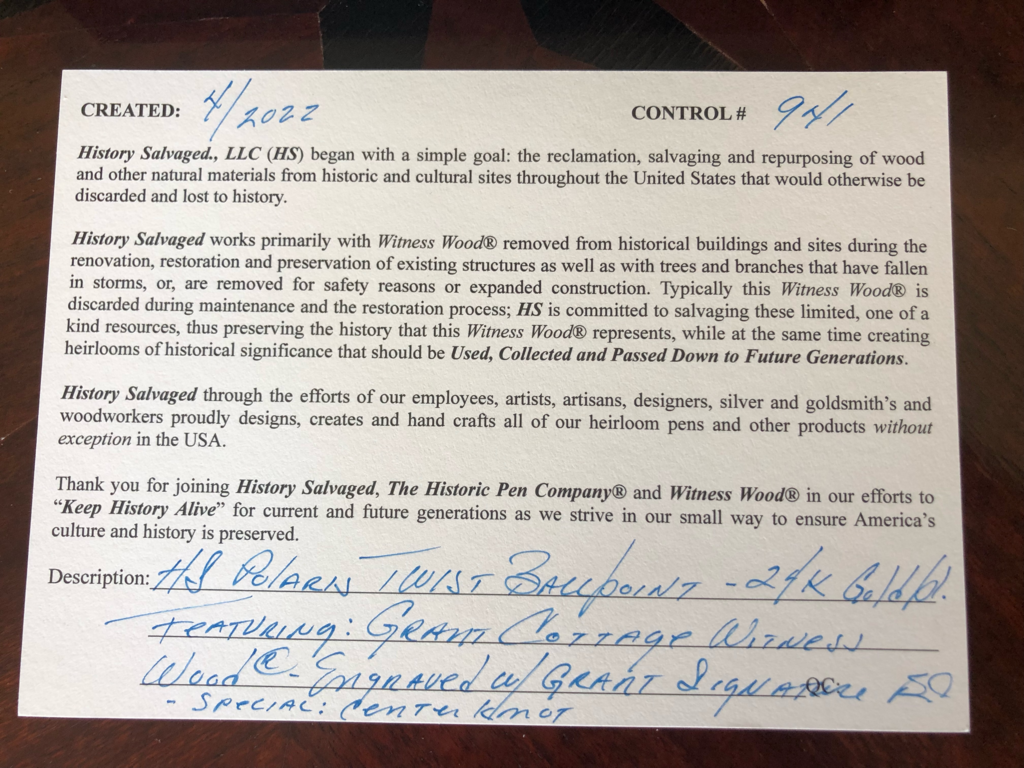 CREATED: 4/2022 CONTROL # 941
History Salvaged., LLC (HS) began with a simple goal: the reclamation, salvaging and repurposing of wood
and other natural materials from historic and cultural sites throughout the United States that would otherwise be
discarded and lost to history.
History Salvaged works primarily with Witness Wood® removed from historical buildings and sites during the
renovation, restoration and preservation of existing structures as well as with trees and branches that have fallen
in storms, or, are removed for safety reasons or expanded construction. Typically this Witness Wood® is
discarded during maintenance and the restoration process; HS is committed to salvaging these limited, one of a
kind resources, thus preserving the history that this Witness Wood® represents, while at the same time creating
heirlooms of historical significance that should be Used, Collected and Passed Down to Future Generations.
History Salvaged through the efforts of our employees, artists, artisans, designers, silver and goldsmith's and
woodworkers proudly designs, creates and hand crafts all of our heirloom pens and other products without
exception in the USA.
Thank you for joining History Salvaged, The Historic Pen Company® and Witness Wood® in our efforts to
"Keep History Alive" for current and future generations as we strive in our small way to ensure America's
culture and history is preserved.
Description: HS POLARIS TWIST BALLPOINT - 24K Gold pl.
FEATURING: GRANT COTTAGE WITNESS
Wood® - Engraved w/ GRANT SIGNATURE QC
- SPECIAL: CENTER KNOT